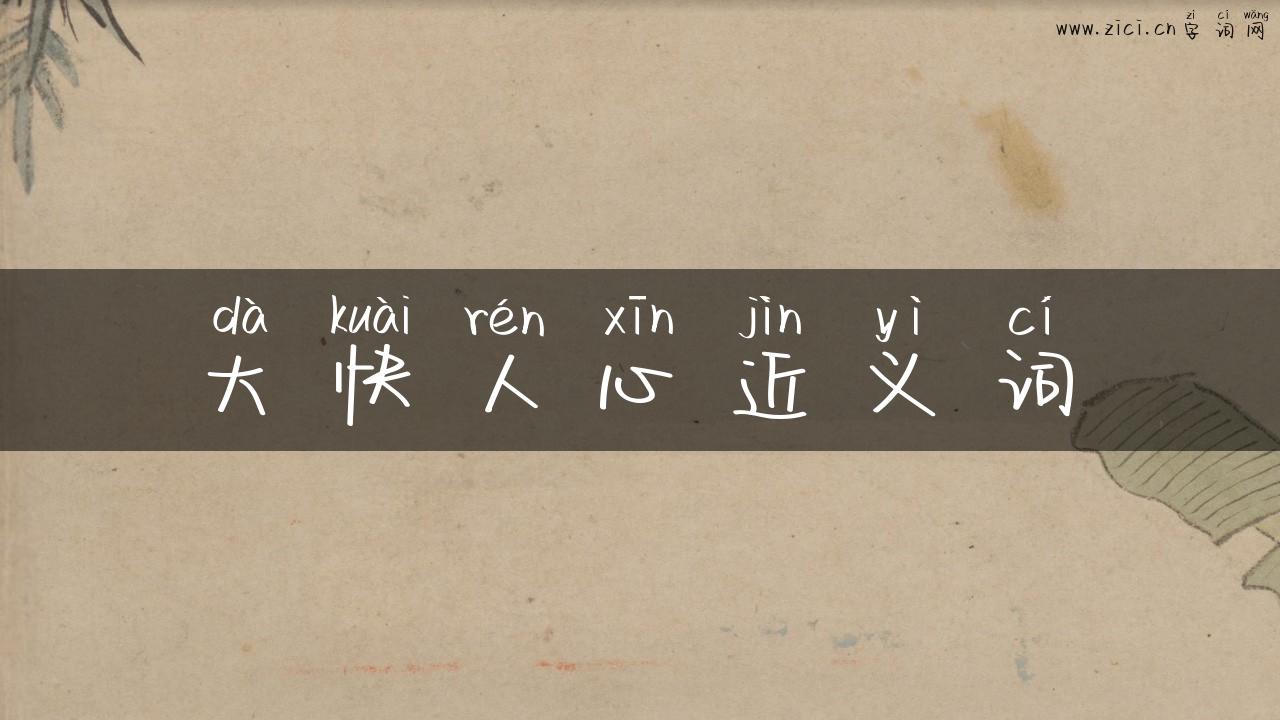 zì cí wǎng
www.zici.cn 字词网
dà kuài rén xīn jìn yì cí
大快人心近义词